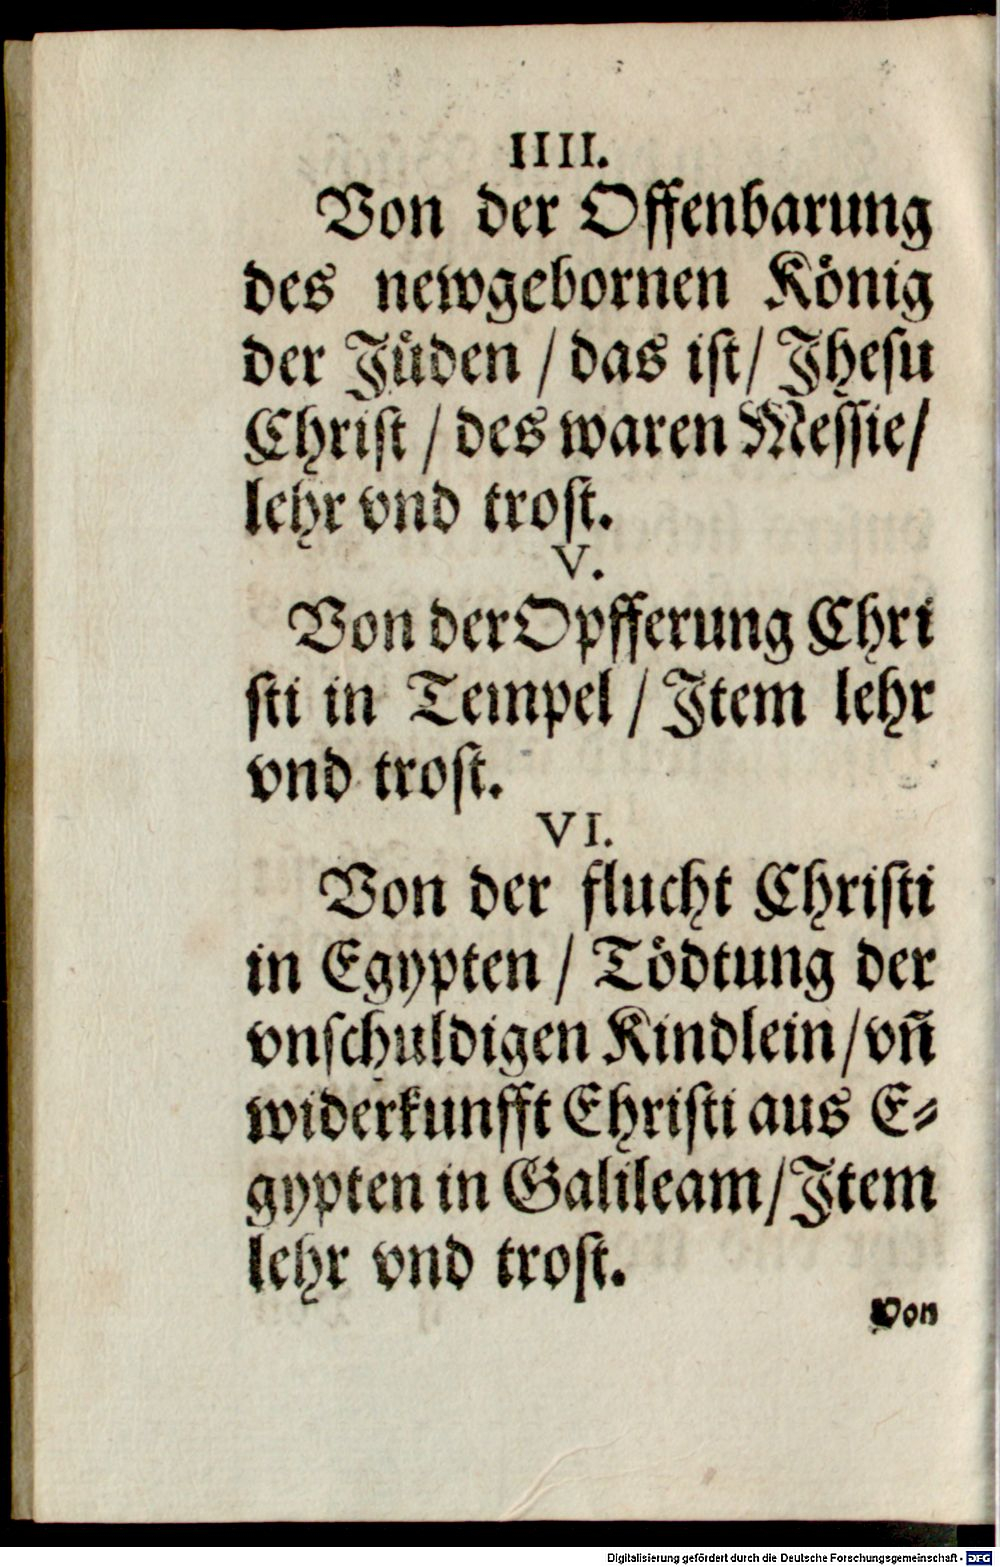 IIII.
Von der Offenbarung
des newgebornen König
der Jüden / das ist / Jhesu
Christ / des waren Messie /
lehr vnd trost.
V.
Von der Opfferung Chri
sti in Tempel / Jtem lehr
vnd trost.
VI.
Von der flucht Christi
in Egypten / Tödtung der
vnschuldigen Kindlein / vñ
widerkunfft Christi aus E-
gypten in Galileam / Jtem
lehr vnd trost.
Von
Digitalisierung gefördert durch die Deutsche Forschungsgemeinschaft - DFG